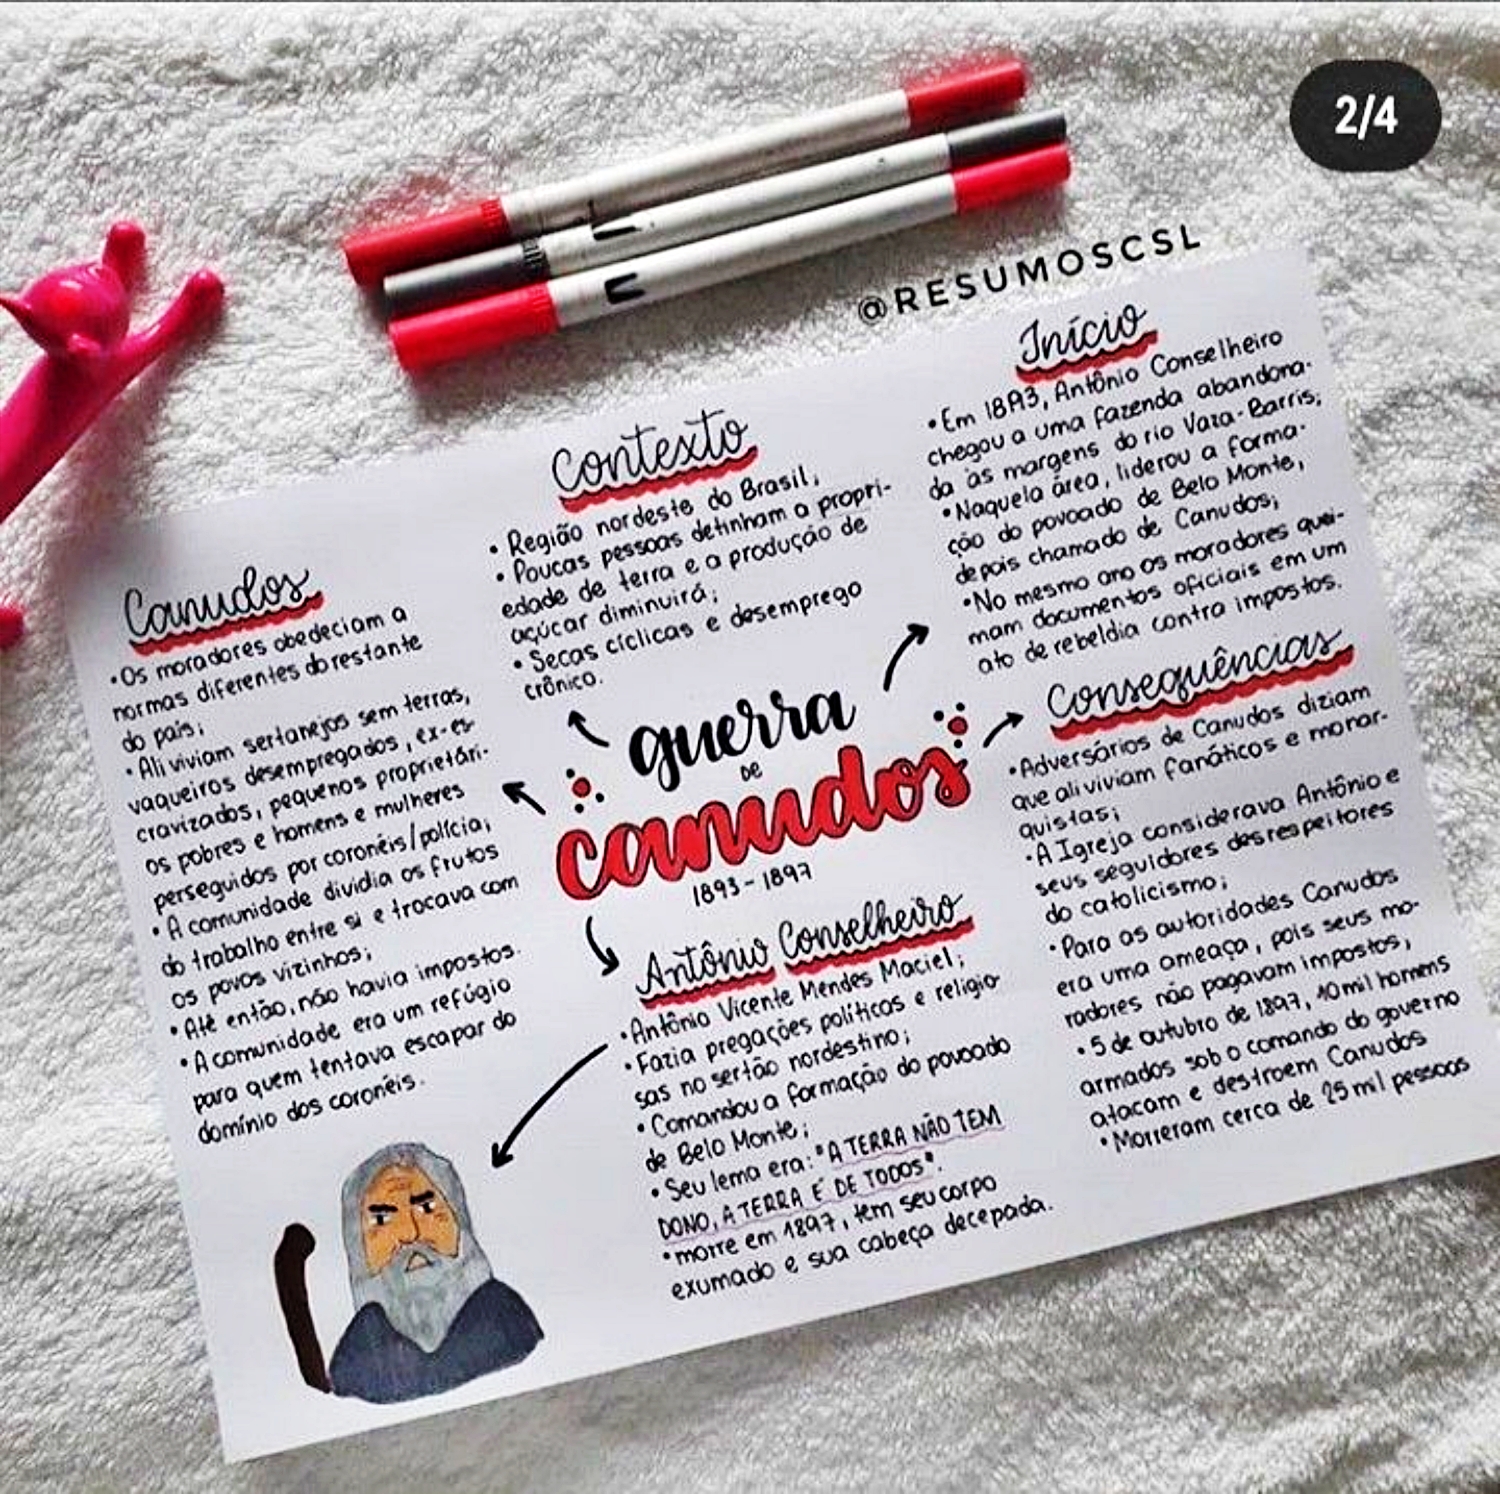 2/4
@RESUMOSCSL
guerra
DE
canudos
1893-1897
Contexto
• Região nordeste do Brasil;
• Poucas pessoas detinham a propri-
edade de terra e a produção de
açúcar diminuirá;
• Secas cíclicas e desemprego
crônico.
Início
• Em 1893, Antônio Conselheiro
chegou a uma fazenda abandona-
da às margens do rio Vaza-Barris;
• Naquela área, liderou a forma-
ção do povoado de Belo Monte,
depois chamado de Canudos;
• No mesmo ano os moradores quei-
mam documentos oficiais em um
ato de rebeldia contra impostos.
Canudos
• Os moradores obedeciam a
normas diferentes do restante
do país;
• Ali viviam sertanejos sem terras,
vaqueiros desempregados, ex-es-
cravizados, pequenos proprietári-
os pobres e homens e mulheres
perseguidos por coronéis/polícia;
• A comunidade dividia os frutos
do trabalho entre si e trocava com
os povos vizinhos;
• Até então, não havia impostos.
• A comunidade era um refúgio
para quem tentava escapar do
domínio dos coronéis.
Antônio Conselheiro
• Antônio Vicente Mendes Maciel;
• Fazia pregações políticas e religio-
sas no sertão nordestino;
• Comandou a formação do povoado
de Belo Monte;
• Seu lema era: "A TERRA NÃO TEM
DONO, A TERRA É DE TODOS".
• morre em 1897, tem seu corpo
exumado e sua cabeça decepada.
Consequências
• Adversários de Canudos diziam
que ali viviam fanáticos e monar-
quistas;
• A Igreja considerava Antônio e
seus seguidores desrespeitores
do catolicismo;
• Para as autoridades Canudos
era uma ameaça, pois seus mo-
radores não pagavam impostos;
• 5 de outubro de 1897, 10 mil homens
armados sob o comando do governo
atacam e destroem Canudos
• Morreram cerca de 25 mil pessoas